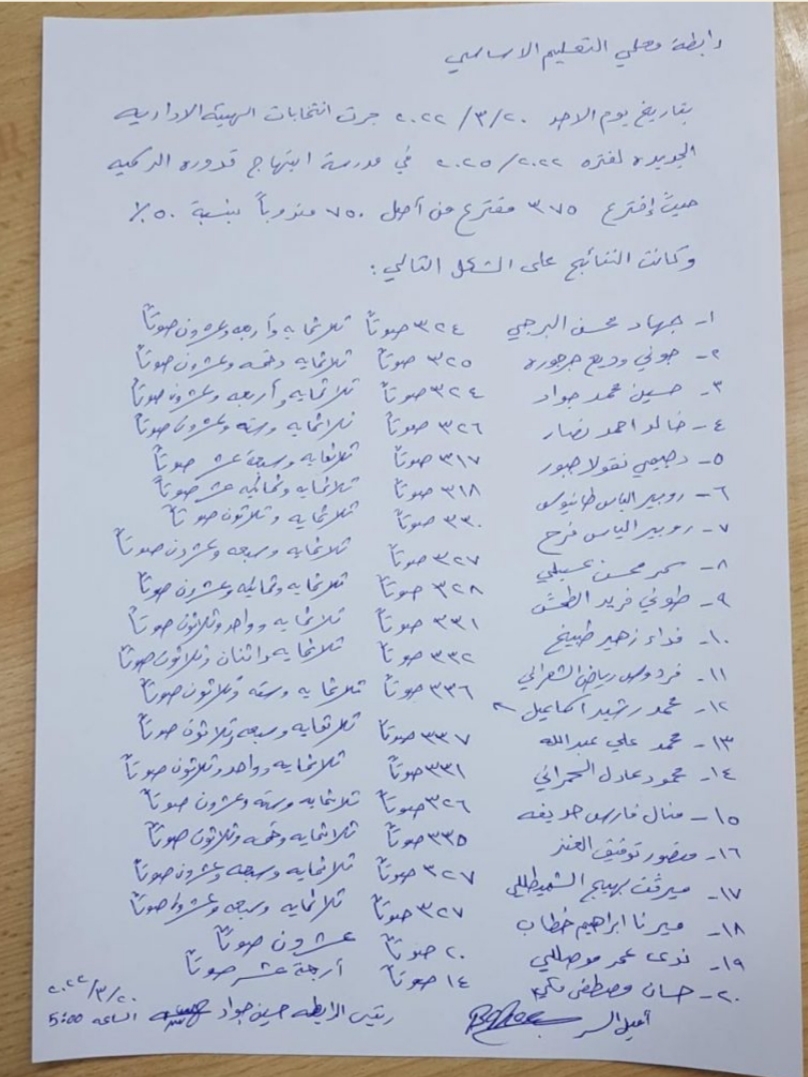 رابطة معلمي التعليم الاساسي
بتاريخ يوم الاحد ٢٠/٣/٢٠٢٢ جرت انتخابات الهيئة الاداريه
الجديده لفتره ٢٠٢٢/٢٠٢٥ في مدرسة ابتهاج قدوره الرسميه
حيث إقترع ٣٧٥ مقترع من أصل ٧٥٠ مندوباً بنسبة ٥٠٪
وكانت النتائج على الشكل التالي:
١- جهاد محسن البرجي ٣٢٤ صوتاً ثلاثمايه وأربعه وعشرون صوتاً
٢- جوني وديع جرجوره ٣٢٥ صوتاً ثلاثمايه وخمسه وعشرون صوتاً
٣- حسين محمد جواد ٣٢٤ صوتاً ثلاثمايه وأربعه وعشرون صوتاً
٤- خالد احمد نصار ٣٢٦ صوتاً ثلاثمايه وسته وعشرون صوتاً
٥- نقولا جبور ٣١٧ صوتاً ثلاثمايه وسبعة عشر صوتاً
٦- روبير الياس طانيوس ٣١٨ صوتاً ثلاثمايه وثمانيه عشر صوتاً
٧- روبير الياس فرح ٣٣٠ صوتاً ثلاثمايه وثلاثون صوتاً
٨- سمر محسن عسيلي ٣٢٧ صوتاً ثلاثمايه وسبعه وعشرون صوتاً
٩- طوني فريد ٣٢٨ صوتاً ثلاثمايه وثمانيه وعشرون صوتاً
١٠- فداء زهير طبيخ ٣٣١ صوتاً ثلاثمايه وواحد وثلاثون صوتاً
١١- فردوس رياض الشعراني ٣٣٢ صوتاً ثلاثمايه واثنان وثلاثون صوتاً
١٢- محمد رشيد اسماعيل ٣٣٦ صوتاً ثلاثمايه وسته وثلاثون صوتاً
١٣- محمد علي عبدالله ٣٣٧ صوتاً ثلاثمايه وسبعه وثلاثون صوتاً
١٤- محمود عادل ٣٣١ صوتاً ثلاثمايه وواحد وثلاثون صوتاً
١٥- منال فارس حديفه ٣٢٦ صوتاً ثلاثمايه وسته وعشرون صوتاً
١٦- منصور توفيق العنز ٣٣٥ صوتاً ثلاثمايه وخمسه وثلاثون صوتاً
١٧- ميرفت بهيج ٣٢٧ صوتاً ثلاثمايه وسبعه وعشرون صوتاً
١٨- ميرنا ابراهيم خطاب ٣٢٧ صوتاً ثلاثمايه وسبعه وعشرون صوتاً
١٩- ندى عمر موصللي ٢٠ صوتاً عشرون صوتاً
٢٠- حسان مصطفى ١٤ صوتاً أربعة عشر صوتاً
أمين السر رئيس الرابطه حسين جواد الساعه 5:00
٢٠/٣/٢٠٢٢